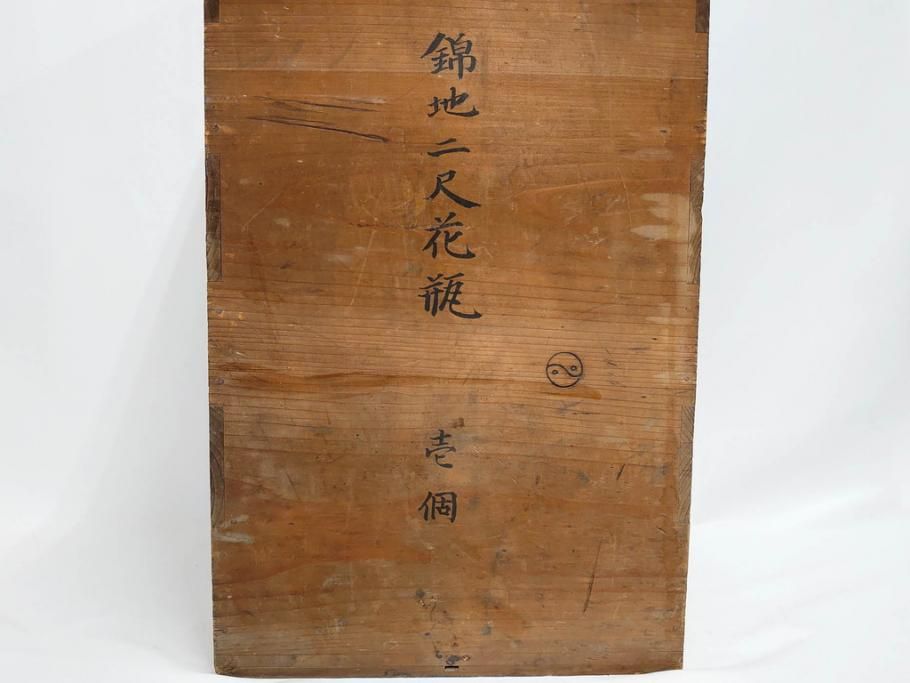 錦地二尺花瓶
壱個